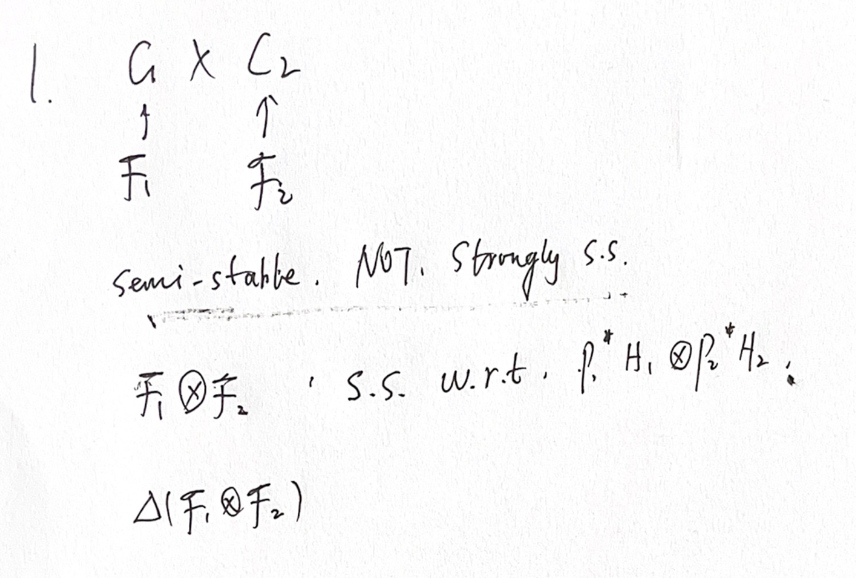 1. C₁ × C₂
↑ ↑
F₁ F₂
semi-stable. NOT. strongly s.s.
F₁ ⊗ F₂ , s.s. w.r.t. p₁* H₁ ⊗ p₂* H₂ .
Δ(F₁ ⊗ F₂)